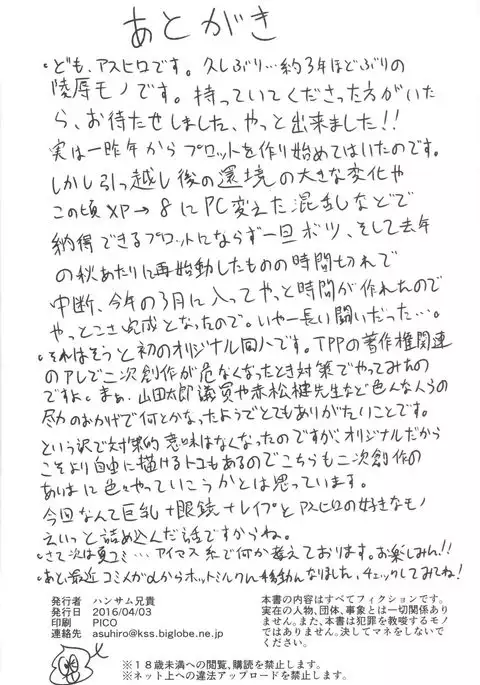 あとがき
・ども、アスヒロです。久しぶり…約3年ほどぶりの
陵辱モノです。持っていてくださった方がいた
ら、お待たせしました、やっと出来ました!!
実は一昨年からプロットを作り始めてはいたのです。
しかし引っ越し後の環境の大きな変化や
この頃XP→8にPC変えた混乱などで
納得できるプロットにならず一旦ボツ、そして去年
の秋あたりに再始動したものの時間切れで
中断、今年の3月に入ってやっと時間が作れたので
やっとこさ完成となったので。いやー長い闘いだった…。
・それはそうと初のオリジナル同人です。TPPの著作権関連
のアレで二次創作が危なくなったとき対策でやってみたもの
ですよ。まぁ、山田太郎議員や赤松健先生など色んな人らの
尽力のおかげで何とかなったようでとてもありがたいことです。
という訳で対策的意味はなくなったのですがオリジナルだから
こそより自由に描けるトコもあるのでこちらも二次創作の
あいまに色々やっていこうかとは思っています。
今回なんて巨乳+眼鏡+レイプとアスヒロの好きなモノ
えいっと詰め込んだ話ですからね。
・さて次は夏コミ…アイマス系で何か考えております。お楽しみん!!
・あと最近コミメガαからホットミルクに移動んなりました、チェックしてみてね!
発行者 ハンサム兄貴
発行日 2016/04/03
印刷 PICO
連絡先 asuhiro@kss.biglobe.ne.jp
本書の内容はすべてフィクションです。
実在の人物、団体、事象とは一切関係あり
ません。また、本書は犯罪を教唆するモノ
ではありません。決してマネをしないで
ください。
※18歳未満への閲覧、購読を禁止します。
※ネット上への違法アップロードを禁止します。